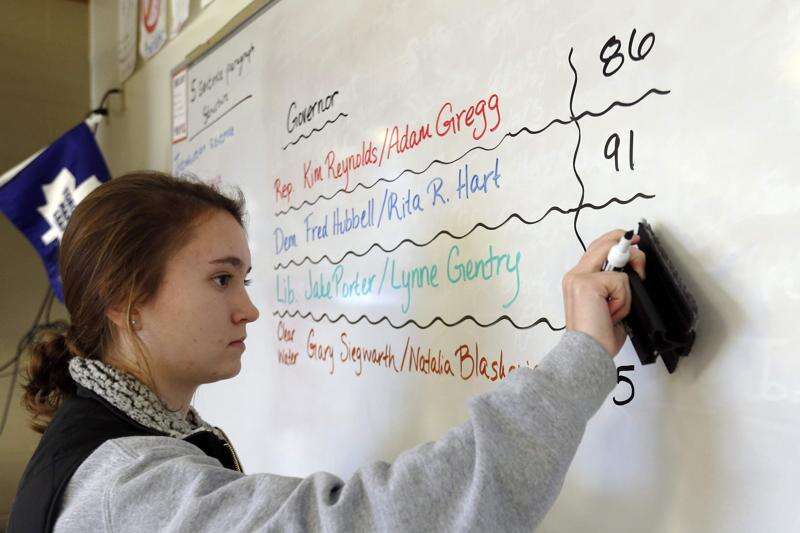 5 Sentence paragraph
Structure
Governor
Rep. Kim Reynolds/Adam Gregg 86
Dem Fred Hubbell/Rita R. Hart 91
Lib. Jake Porter/Lynne Gentry
Clear Water Gary Siegwarth/Natalia 5